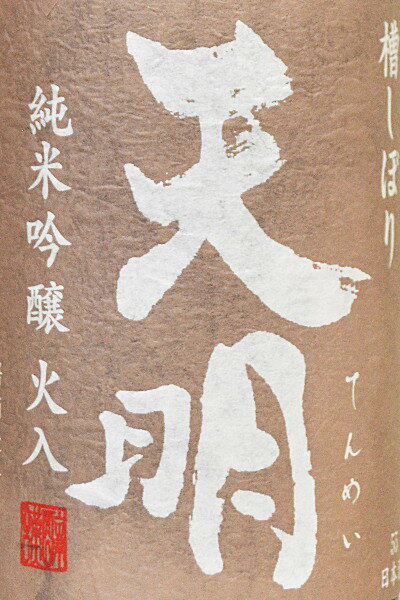 槽しぼり
天明
てんめい
純米吟醸 火入
日本